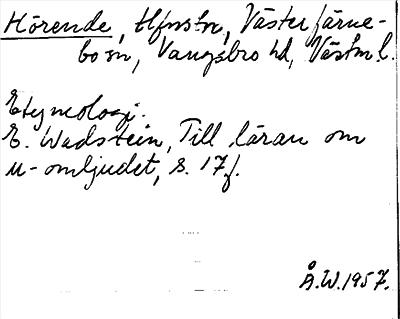 Hörende, tfnstn, Västerfärne-
bo sn, Vangsbro hd, Västml.
Etymologi.
E. Wadstein, Till läran om
u-omljudet, s. 17f.
Å.W. 1957.